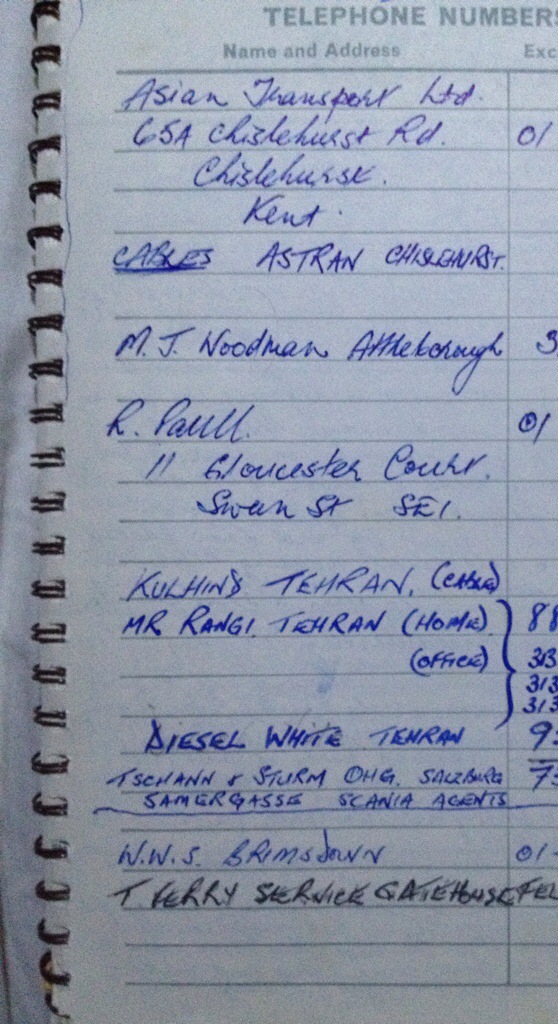 TELEPHONE NUMBERS
Name and Address Exc
Asian Transport Ltd.
65A Chislehurst Rd. 01
Chislehurst.
Kent.
CABLES ASTRAN CHISLEHURST.
M. J. Woodman Attleborough 3
R. Paull. 01
11 Gloucester Court.
Swan St SE1.
KULHINDS TEHRAN. (CABLE)
MR RANGI TEHRAN (HOME) 88
(OFFICE) 313
313
313
DIESEL WHITE TEHRAN 9
TSCHANN & STURM OHG. SALZBURG 7
SAMERGASSE SCANIA AGENTS
W.W.S. BRIMSDOWN 01-
T FERRY SERVICE GATEHOUSE FEL